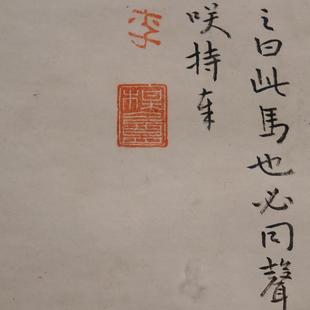 之曰此馬也必同聲
咲持来
李